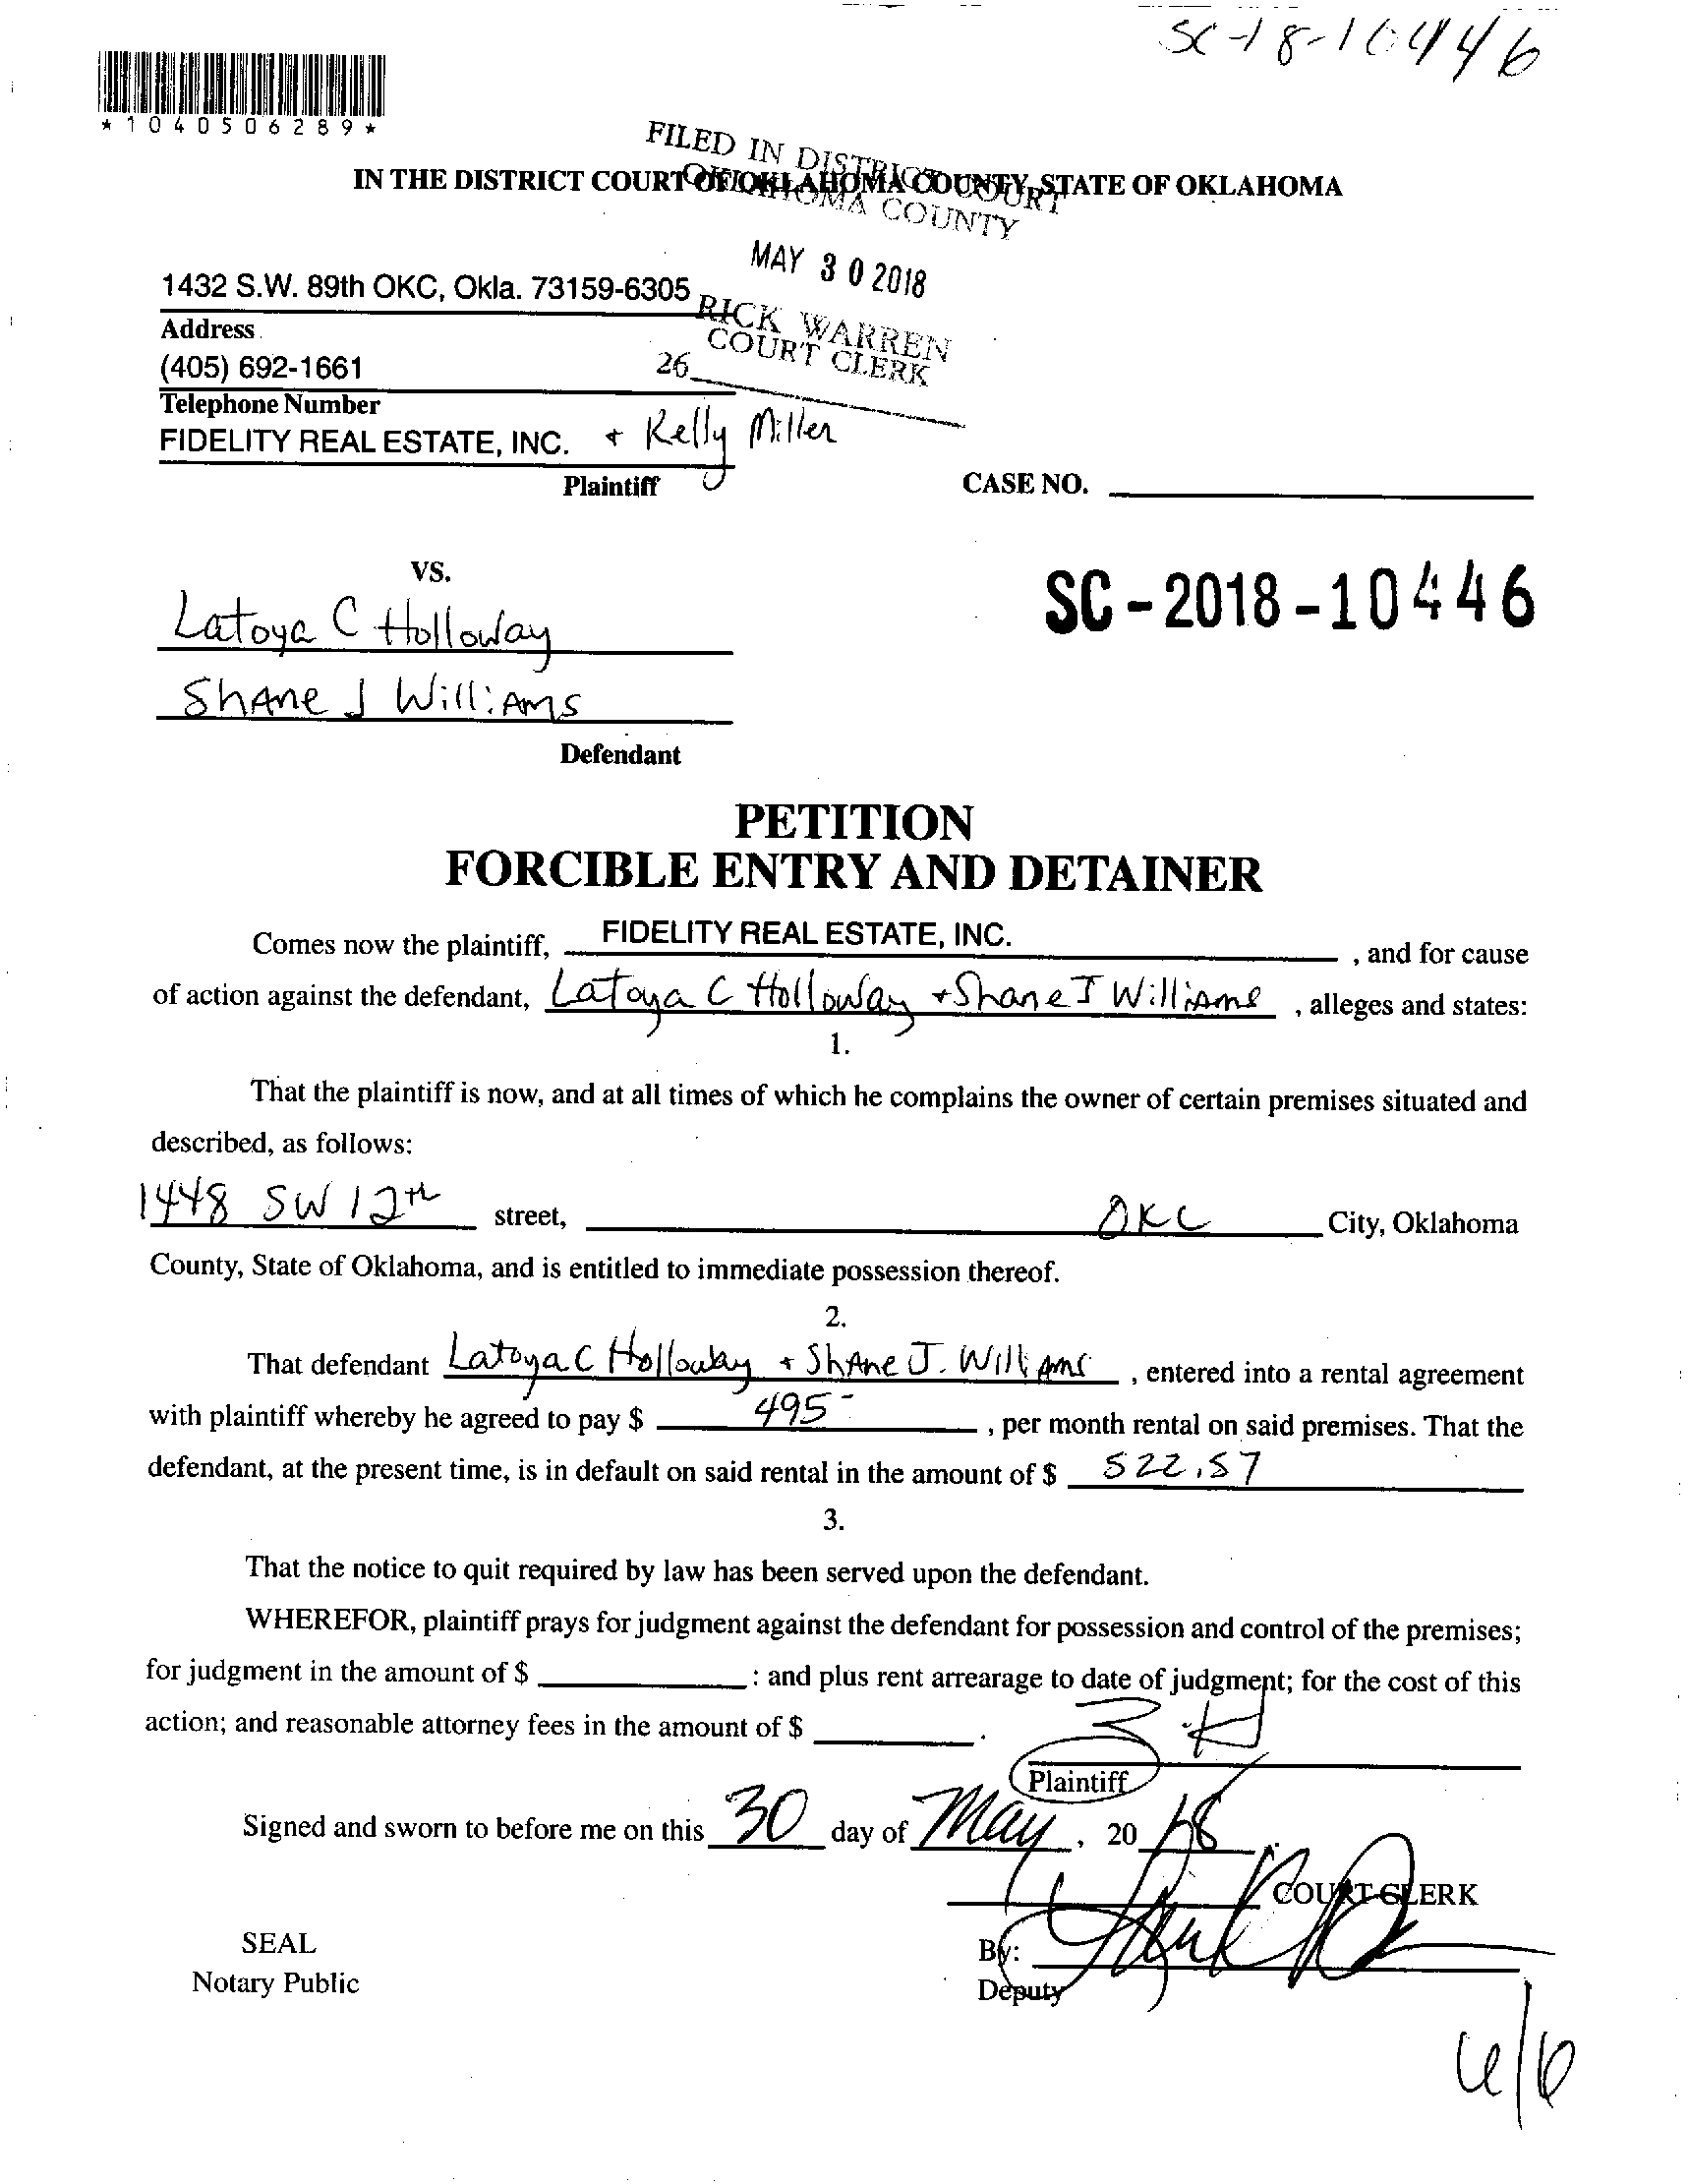 SC-18-10446
*1040506289*
FILED IN DISTRICT COURT
OKLAHOMA COUNTY
IN THE DISTRICT COURT OF OKLAHOMA COUNTY, STATE OF OKLAHOMA
MAY 30 2018
1432 S.W. 89th OKC, Okla. 73159-6305
RICK WARREN
COURT CLERK
Address
(405) 692-1661
26
Telephone Number
FIDELITY REAL ESTATE, INC. + Kelly Miller
Plaintiff
CASE NO.
VS.
SC-2018-10446
Latoya C Holloway
Shane J Williams
Defendant
PETITION
FORCIBLE ENTRY AND DETAINER
Comes now the plaintiff, FIDELITY REAL ESTATE, INC. , and for cause
of action against the defendant, Latoya C Holloway + Shane J Williams , alleges and states:
1.
That the plaintiff is now, and at all times of which he complains the owner of certain premises situated and
described, as follows:
1448 SW 12th street, OKC City, Oklahoma
County, State of Oklahoma, and is entitled to immediate possession thereof.
2.
That defendant Latoya C Holloway + Shane J. Williams , entered into a rental agreement
with plaintiff whereby he agreed to pay $ 495- , per month rental on said premises. That the
defendant, at the present time, is in default on said rental in the amount of $ 522.57
3.
That the notice to quit required by law has been served upon the defendant.
WHEREFOR, plaintiff prays for judgment against the defendant for possession and control of the premises;
for judgment in the amount of $ : and plus rent arrearage to date of judgment; for the cost of this
action; and reasonable attorney fees in the amount of $ .
Plaintiff
Signed and sworn to before me on this 30 day of May , 20 18 .
COURT CLERK
SEAL
By:
Notary Public
Deputy
6/6